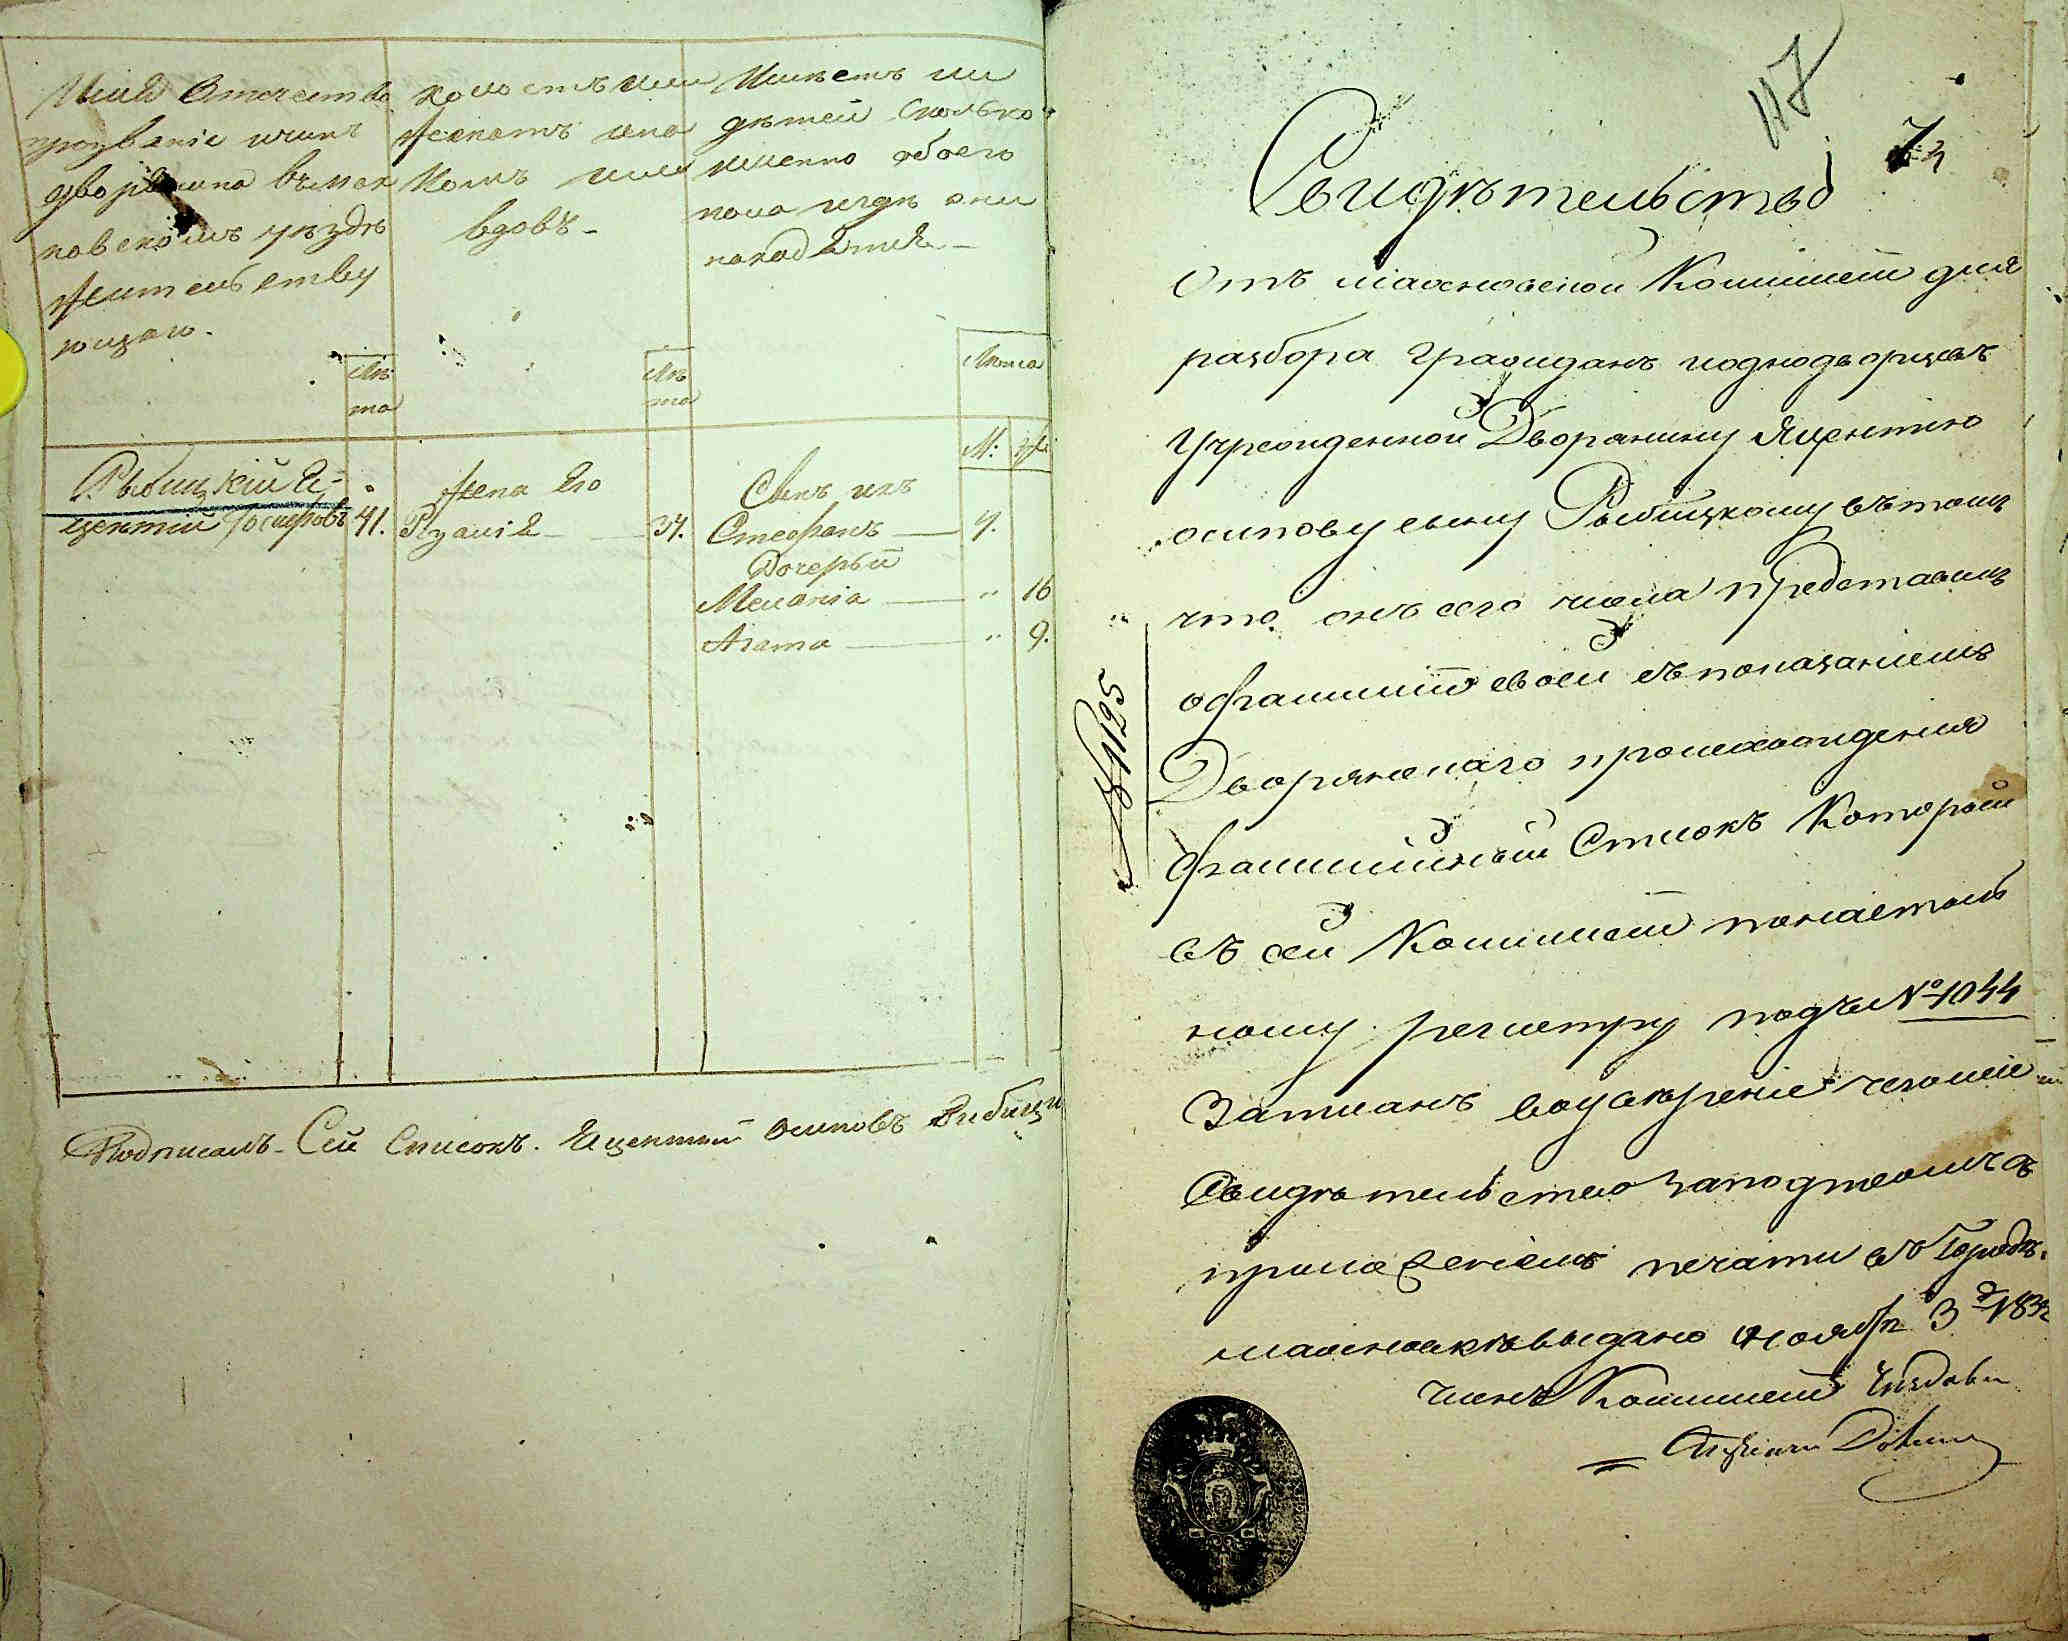 Имя Отечество
прозвание и чинъ
дворянина въ мах
новскомъ уѣздѣ
жительству
ющаго.
Лѣ
та
холостъ или
женатъ и на
комъ или
вдовъ
Лѣ
та
Имѣетъ ли
дѣтей сколько
именно обоего
пола и гдѣ они
находятся
Лѣта
М: Ж:
Рыбицкій Я-
центій Іосифовъ 41.
Жена Его
Рузалія 37.
Сынъ ихъ
Стефанъ 7.
Дочерьи
Меланія " 16
Агата " 9.
Подписалъ Сей Списокъ. Яцентий Осиповъ Рибицки
117
74
Свидѣтельство
Отъ махновской Коммисіи для
разбора Гражданъ и однодворцевъ
Учрежденной Дворянину Яцентию
осипову сыну Рыбицкому въ томъ
что онъ сего числа представилъ
о фамиліи своей съ показаніемъ
Дворянскаго происхожденія
фамилийный Списокъ Который
въ сей Коммисіи
ному регистру подъ № 1044
Записанъ во увѣрение чего сие
Свидѣтельство за подписомъ съ
приложеніемъ печати въ Городѣ
махновкѣ выдано ноября 3 д 183
членъ Коммисіи
№ 1125